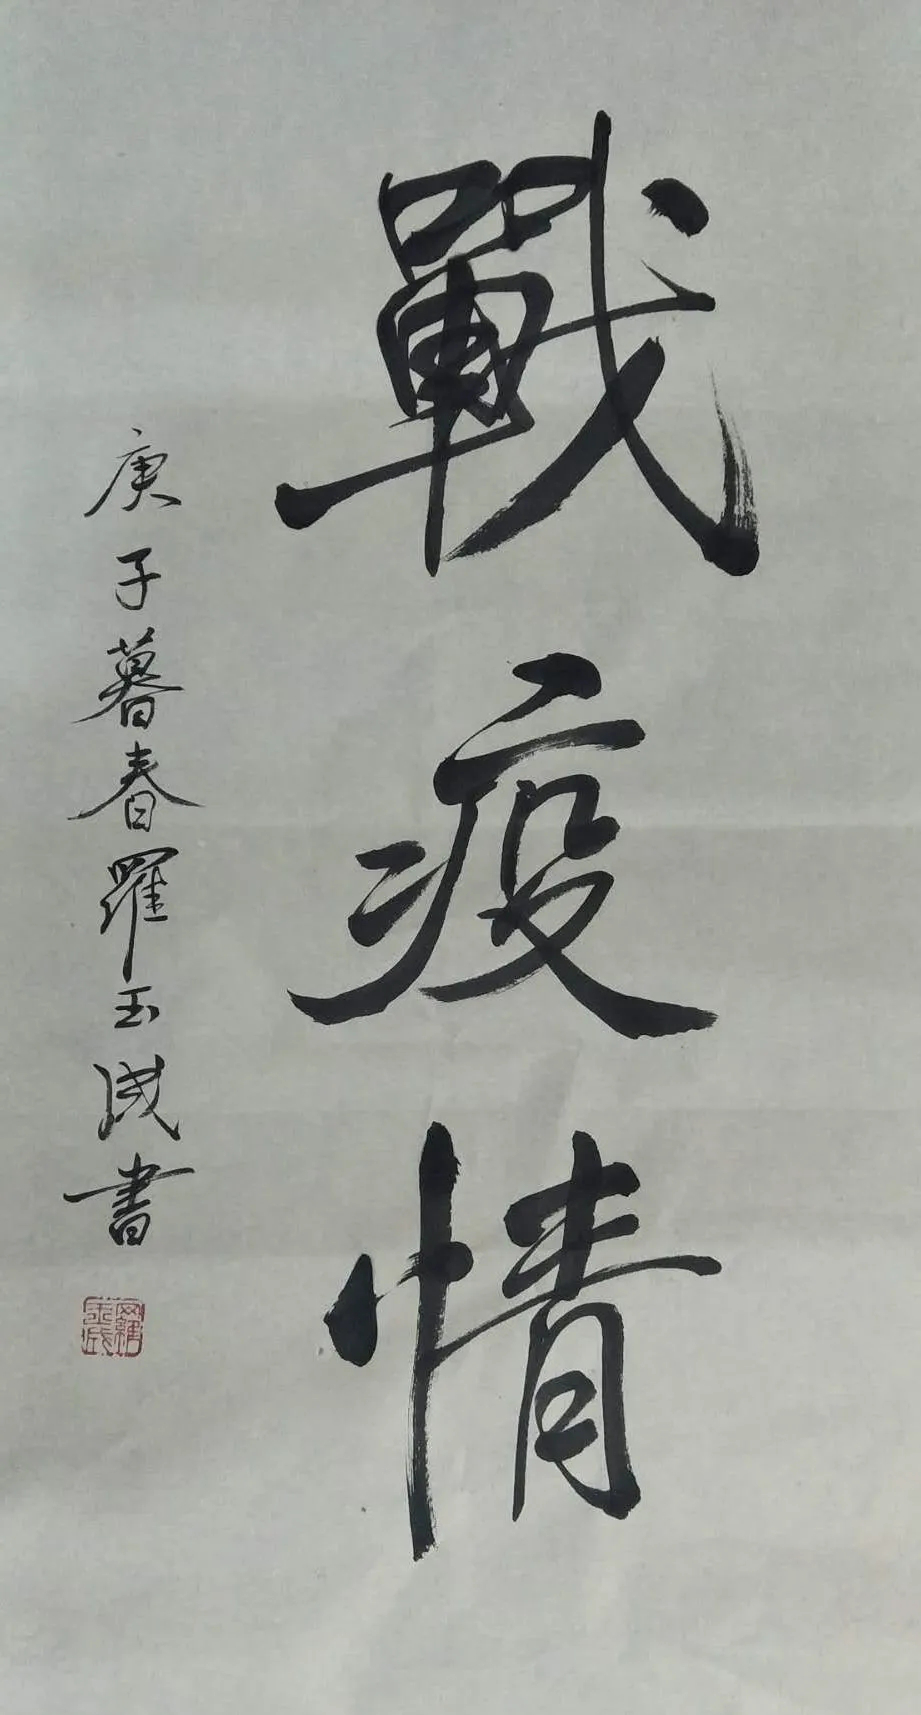 戰疫情
庚子暮春羅玉成書